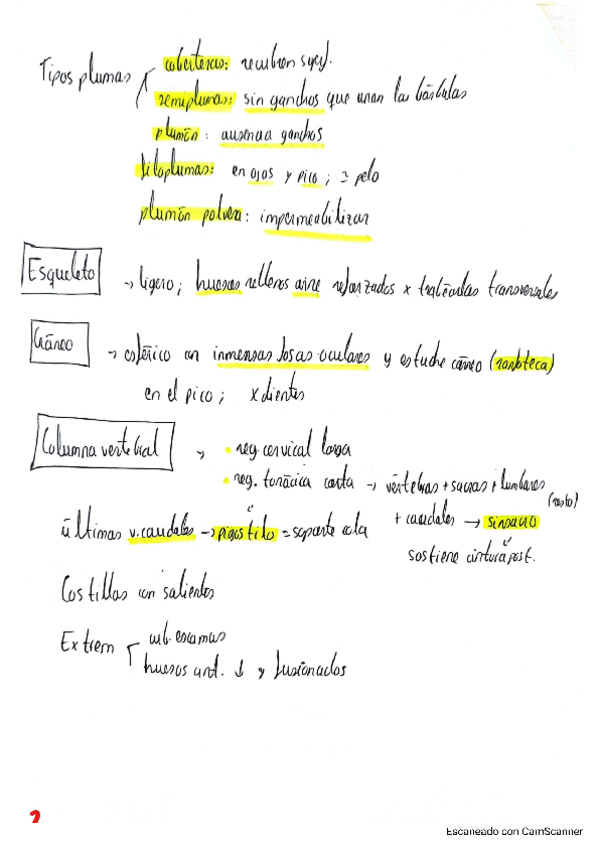 Tipos plumas
coberteras: recubren superf.
semiplumas: sin ganchos que unan las bárbulas
plumón: ausencia ganchos
filoplumas: en ojos y pico; ≃ pelo
plumón polvera: impermeabilizar
Esqueleto → ligero; huesos rellenos aire reforzados x trabéculas transversales
Cráneo → esférico con inmensas fosas oculares y estuche córneo (ranfoteca)
en el pico; x dientes
Columna vertebral → • reg. cervical larga
• reg. torácica corta → vértebras + sacras + lumbares
(resto)
+ caudales → sinsacro
últimas v. caudales → pigostilo = soporte cola
sostiene cintura post.
Costillas con salientes
Extrem
cub. escamas
huesos ant. ↓ y fusionados
Escaneado con CamScanner